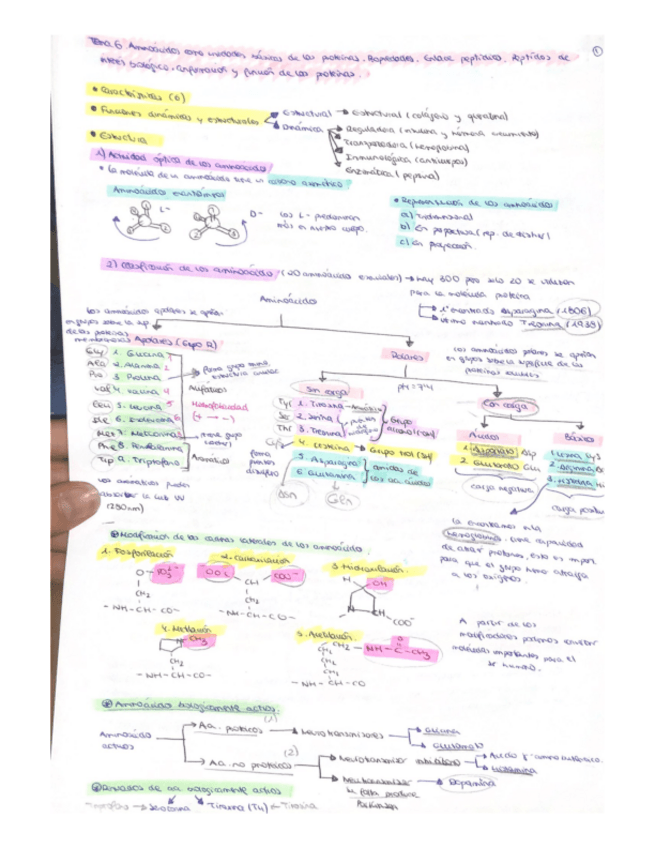 Tema 6. Aminoácidos como unidades básicas de las proteínas. Propiedades. Enlace peptídico. Péptidos de
interés biológico. Conformación y función de las proteínas.
1
• Características (6)
• Funciones dinámicas y estructurales
Estructural → Estructural (colágeno y queratina)
Dinámica
Reguladora (insulina y hormona crecimiento)
Transportadora (hemoglobina)
Inmunológica (anticuerpos)
Enzimática (pepsina)
• Estructura
1) Actividad óptica de los aminoácidos
• La molécula de un aminoácido tiene un carbono asimétrico
Aminoácidos
L-
D-
Los L- predominan
más en nuestro cuerpo.
• Representación de los aminoácidos
a) Tridimensional
b) En perspectiva (rep. de Fischer)
c) En proyección.
2) Clasificación de los aminoácidos (20 aminoácidos esenciales) → hay 300 pero solo 20 se utilizan
para la molécula proteína
Aminoácidos
1º encontrado Asparagina (1806)
último encontrado Treonina (1938)
Los aminoácidos apolares se
en grupos sobre la
de las proteínas
membranosas
Apolares (Grupo R)
Gly 1. Glicina
Ala 2. Alanina
Pro 3. Prolina
Val 4. Valina
Leu 5. Leucina
Ile 6. Isoleucina
Met 7. Metionina
Phe 8. Fenilalanina
Trp 9. Triptófano
Alifáticos
Hidrofobicidad
(+ → -)
tiene grupo
Aromáticos
Los aromáticos pueden
absorber la luz UV
(280nm)
Polares
pH = 7'4
Los aminoácidos polares se
en grupos sobre la superficie de las
proteínas
Sin carga
Tyr 1. Tirosina → Aromático
Ser 2. Serina
Thr 3. Treonina
Grupo
alcohol (OH)
Cys 4. Cisteína → Grupo tiol (SH)
forma
puentes
disulfuro
5. Asparagina
6. Glutamina
amidas de
los aa. ácidos
Asn
Gln
Con carga
Ácidos
1. Aspartato Asp
2. Glutamato Glu
carga negativa
Básicos
1. Lisina Lys
2. Arginina
3. Histidina
carga
la encontramos en la
hemoglobina. tiene capacidad
de atraer protones, esto es impor.
para que el grupo hemo atraiga
a los oxígenos.
Modificación de las cadenas laterales de los aminoácidos.
1. Fosforilación
2. Carboxilación
3. Hidroxilación
O - PO3
-OOC
COO-
CH
CH2
CH2
H
OH
N
CH
COO-
- NH - CH - CO -
- NH - CH - CO -
4. Metilación
5. Acetilación.
N - CH3
CH2
- NH - CH - CO -
CH2
CH2
CH2
NH - C - CH3
O
- NH - CH - CO
A partir de los
modificadores podemos
moléculas importantes para el
ser humano.
Aminoácidos biológicamente activos.
Aminoácido
activos
(1)
Aa. proteicos → Neurotransmisores
Glicina
Glutamato
(2)
Aa. no proteicos
Neurotransmisor inhibitorio
Ácido γ-aminobutírico.
Histamina
Neurotransmisor → Dopamina
la falta produce
Parkinson
Derivados de aa biológicamente activos
Triptófano → Serotonina
Tiroxina (T4) ← Tirosina